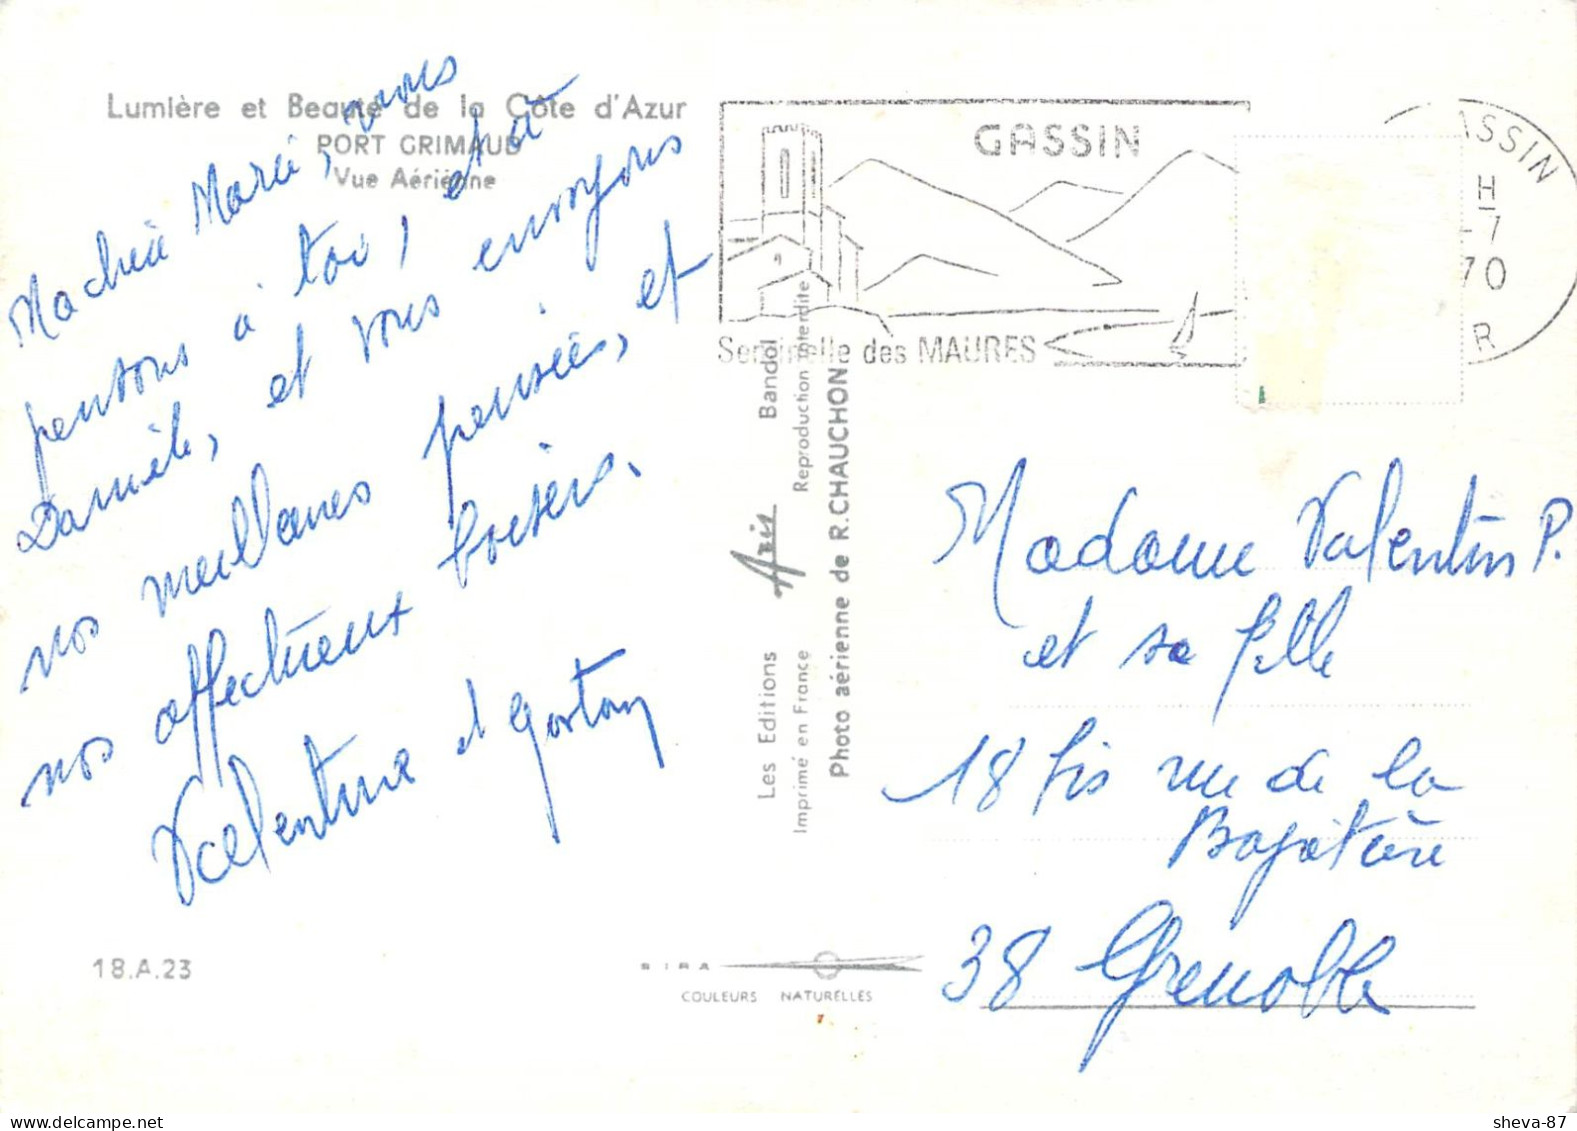 Lumière et Beauté de la Côte d'Azur
PORT GRIMAUD
Vue Aérienne
Ma chère Marie, nous
pensons à toi, et à
Danièle, et vous envoyons
nos meilleures pensées, et
nos affectueux baisers.
Valentine et Gaston
18.A.23
GASSIN
Sentinelle des MAURES
ASSIN
H
-7
70
R
Les Editions Aris Bandol
Imprimé en France Reproduction interdite
Photo aérienne de R. CHAUCHON
SIRA
COULEURS NATURELLES
Madame Valentin P.
et sa fille
18 bis rue de la
38 Grenoble
sheva-87